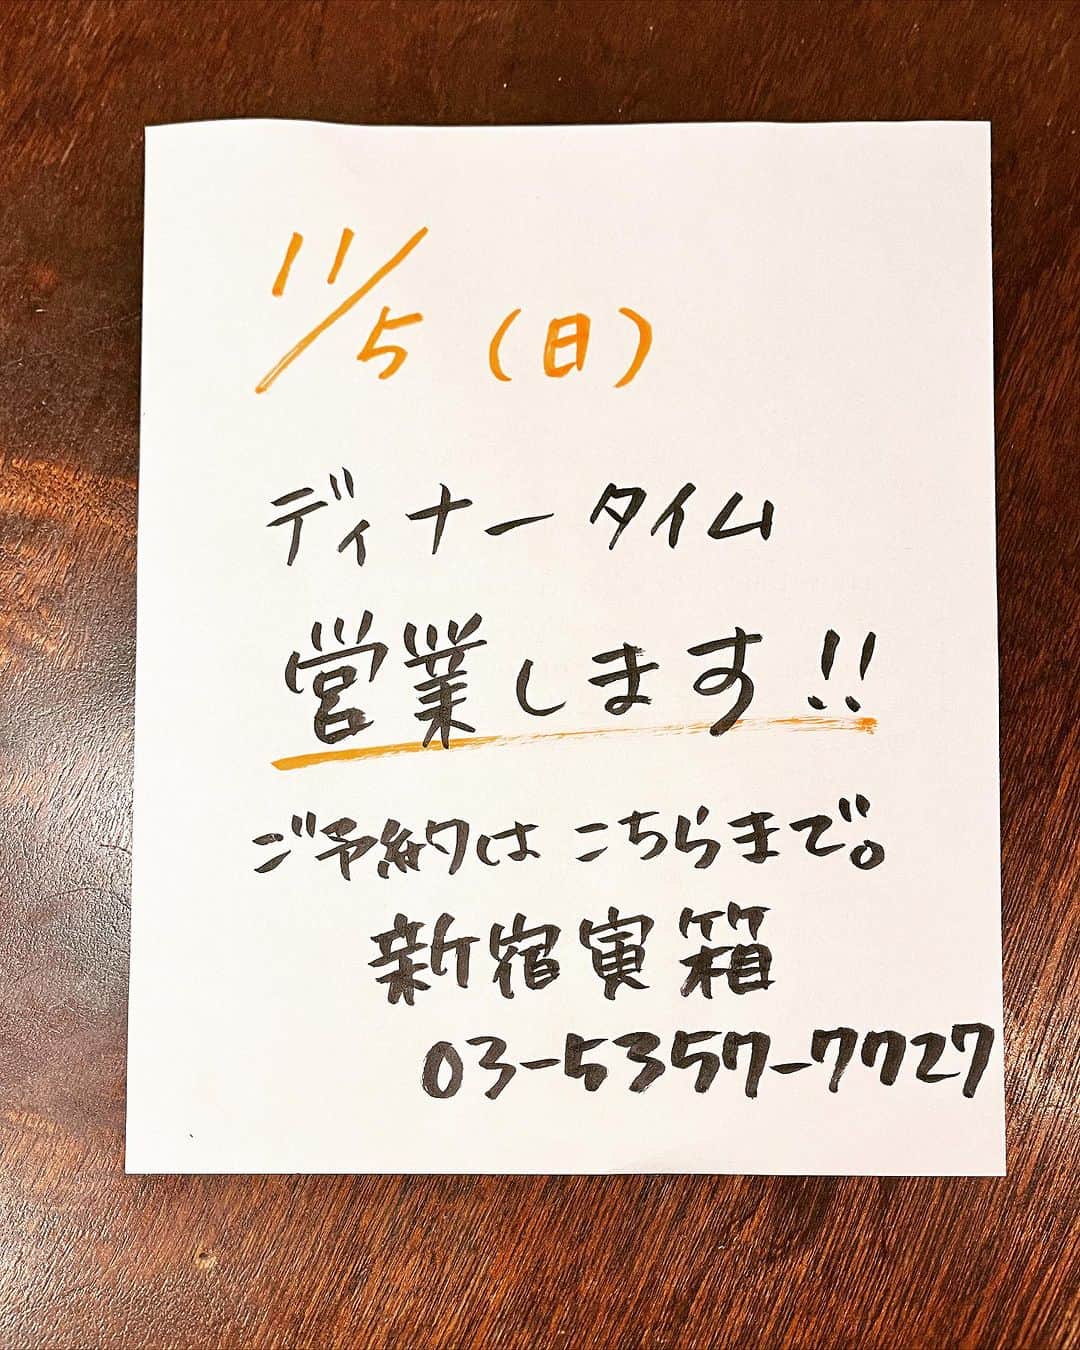 11/5(日)
ディナータイム
営業します!!
ご予約はこちらまで。
新宿寅箱
03-5357-7727